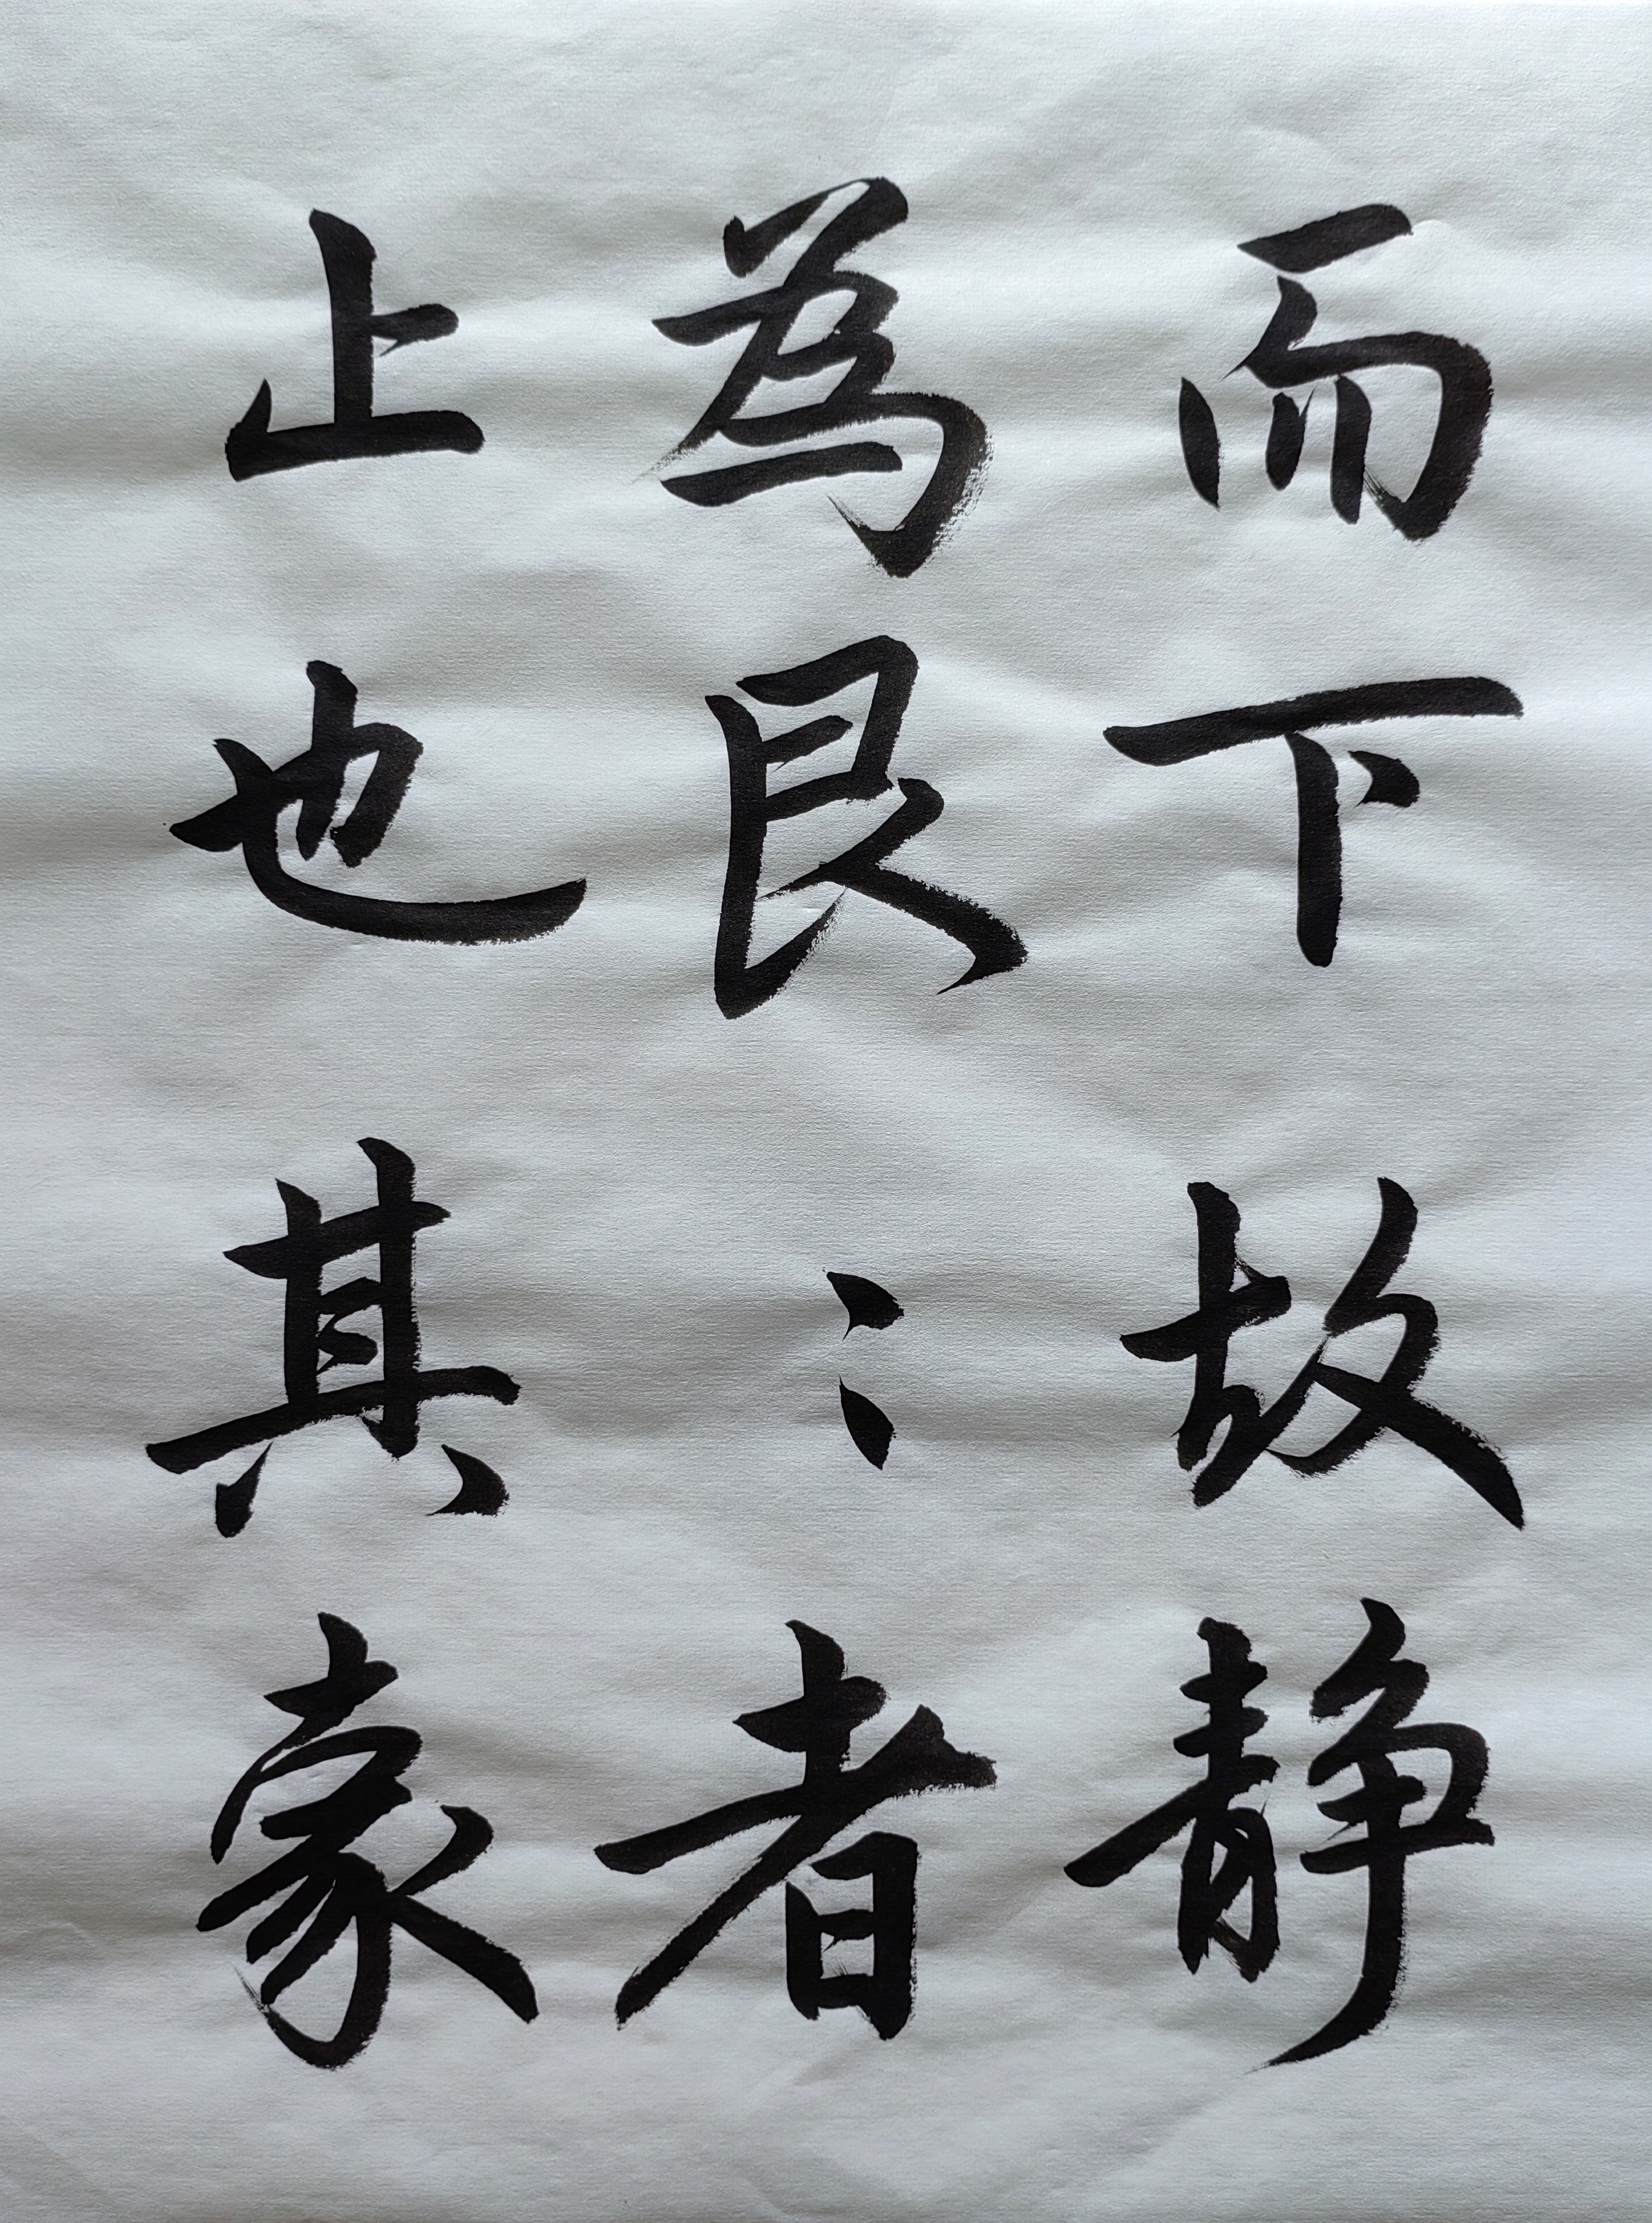 而下故静
為艮〻者
止也其象